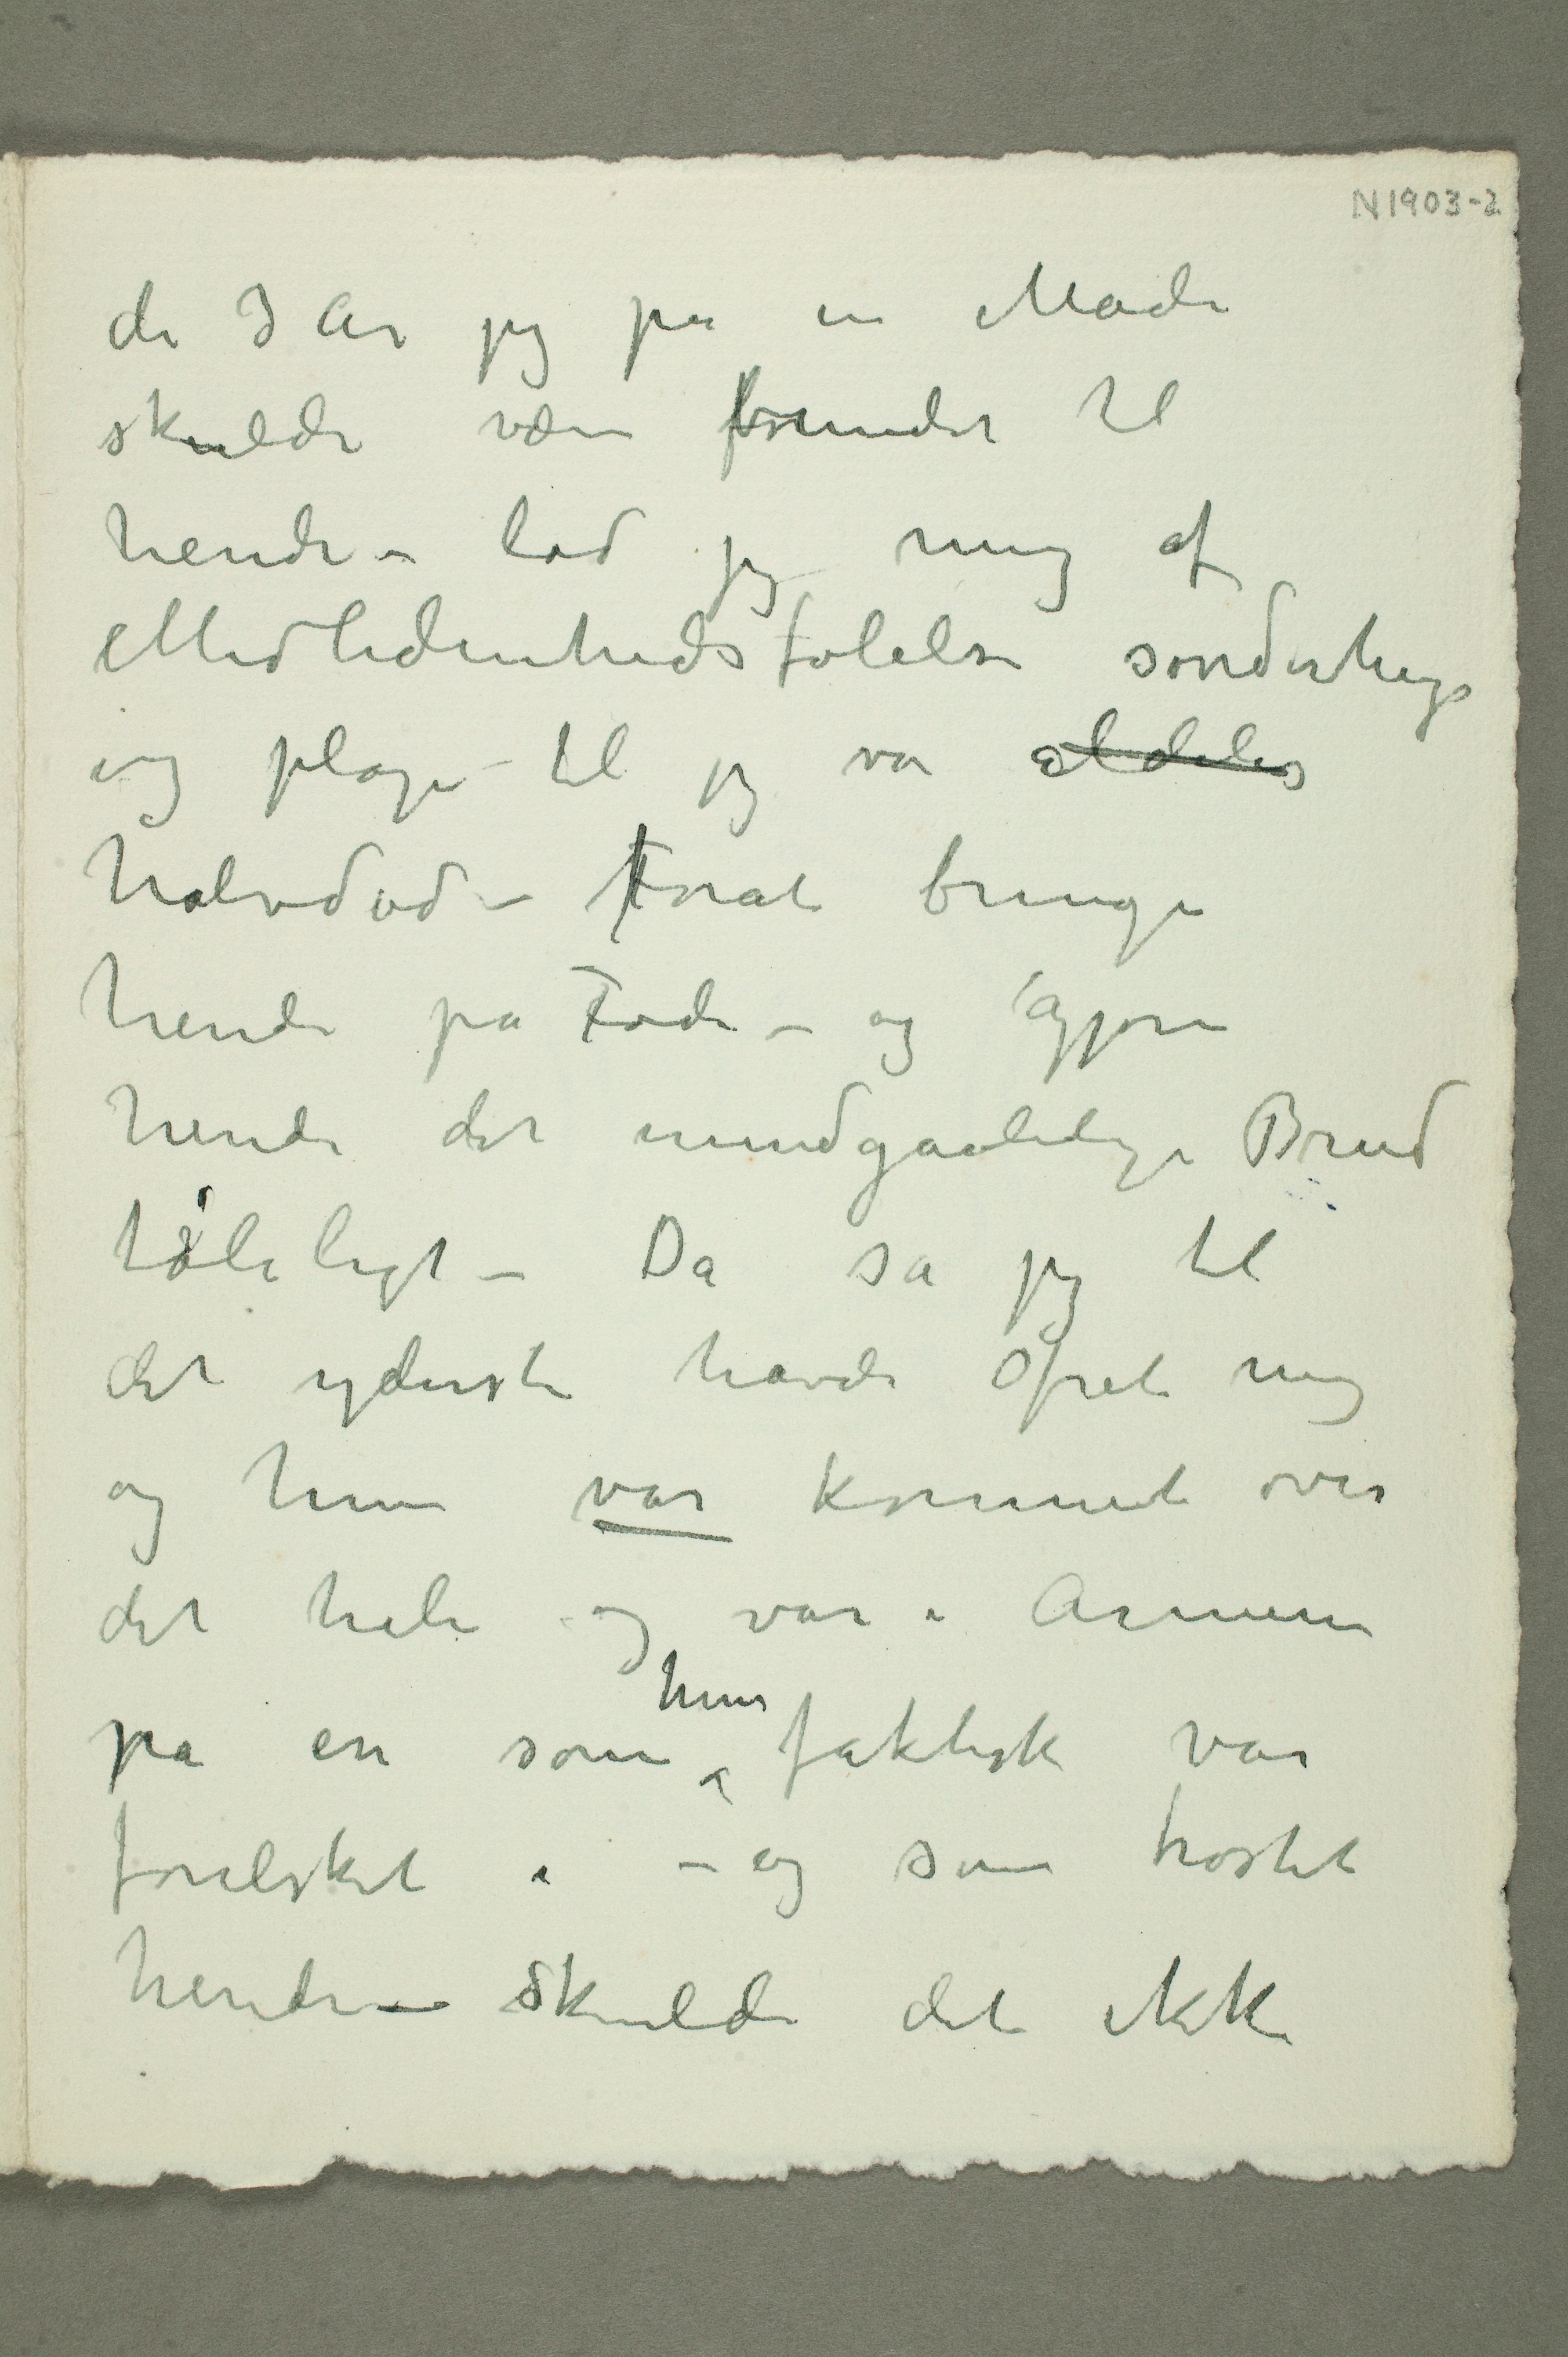 N1903-2
de 3 År jeg på en Måde
skulde være bundet til
hende – lod jeg mig af
Medlidenhedsfølelse sønderhage
og plage – til jeg var aldeles
halvdød – Forat bringe
hende på Fode – og gjøre
hende det uundgåelige Brud
tåleligt – Da så jeg til
det yderste havde Ofret mig
og hun var kommet over
det hele og var i Armene
på en som hun faktisk var
forelsket i – og som trøstet
hende – Skulde det ikke